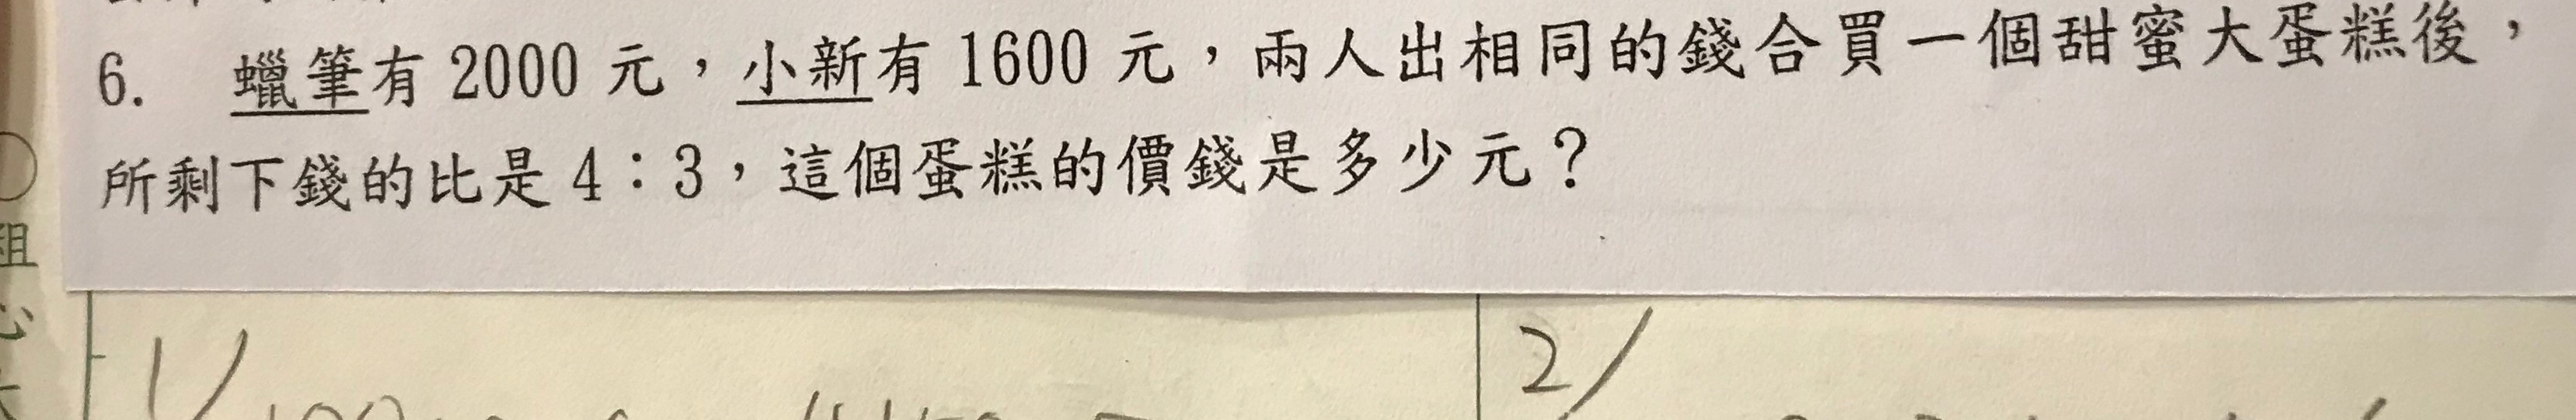 6. 蠟筆有 2000 元，小新有 1600 元，兩人出相同的錢合買一個甜蜜大蛋糕後，
所剩下錢的比是 4：3，這個蛋糕的價錢是多少元？
組
心
1/
2/